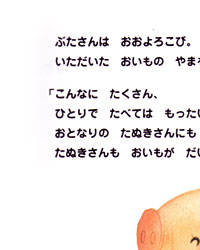 ぶたさんは　おおよろこび。
いただいた　おいもの　やま
「こんなに　たくさん、
ひとりで　たべては　もったい
おとなりの　たぬきさんにも
たぬきさんも　おいもが　だい